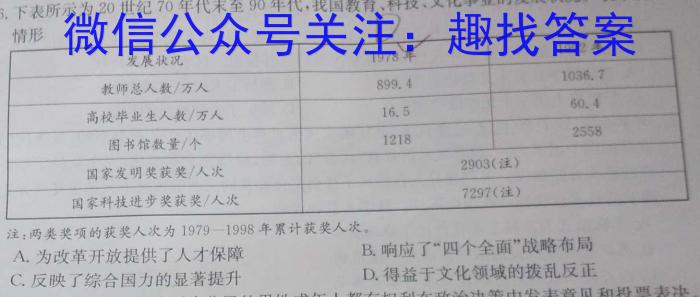 6.下表所示为20世纪70年代末至90年代,我国教育、科技、文化事业的发展
情形
微信公众号关注：趣找答案
发展状况 1978年
教师总人数/万人 899.4 1036.7
高校毕业生人数/万人 16.5 60.4
图书馆数量/个 1218 2558
国家发明奖获奖/人次 2903(注)
国家科技进步奖获奖/人次 7297(注)
注:两类奖项的获奖人次为1979—1998年累计获奖人次。
A. 为改革开放提供了人才保障 B. 响应了“四个全面”战略布局
C. 反映了综合国力的显著提升 D. 得益于文化领域的拨乱反正
都有权利在政治决策中发表意见和投票表决